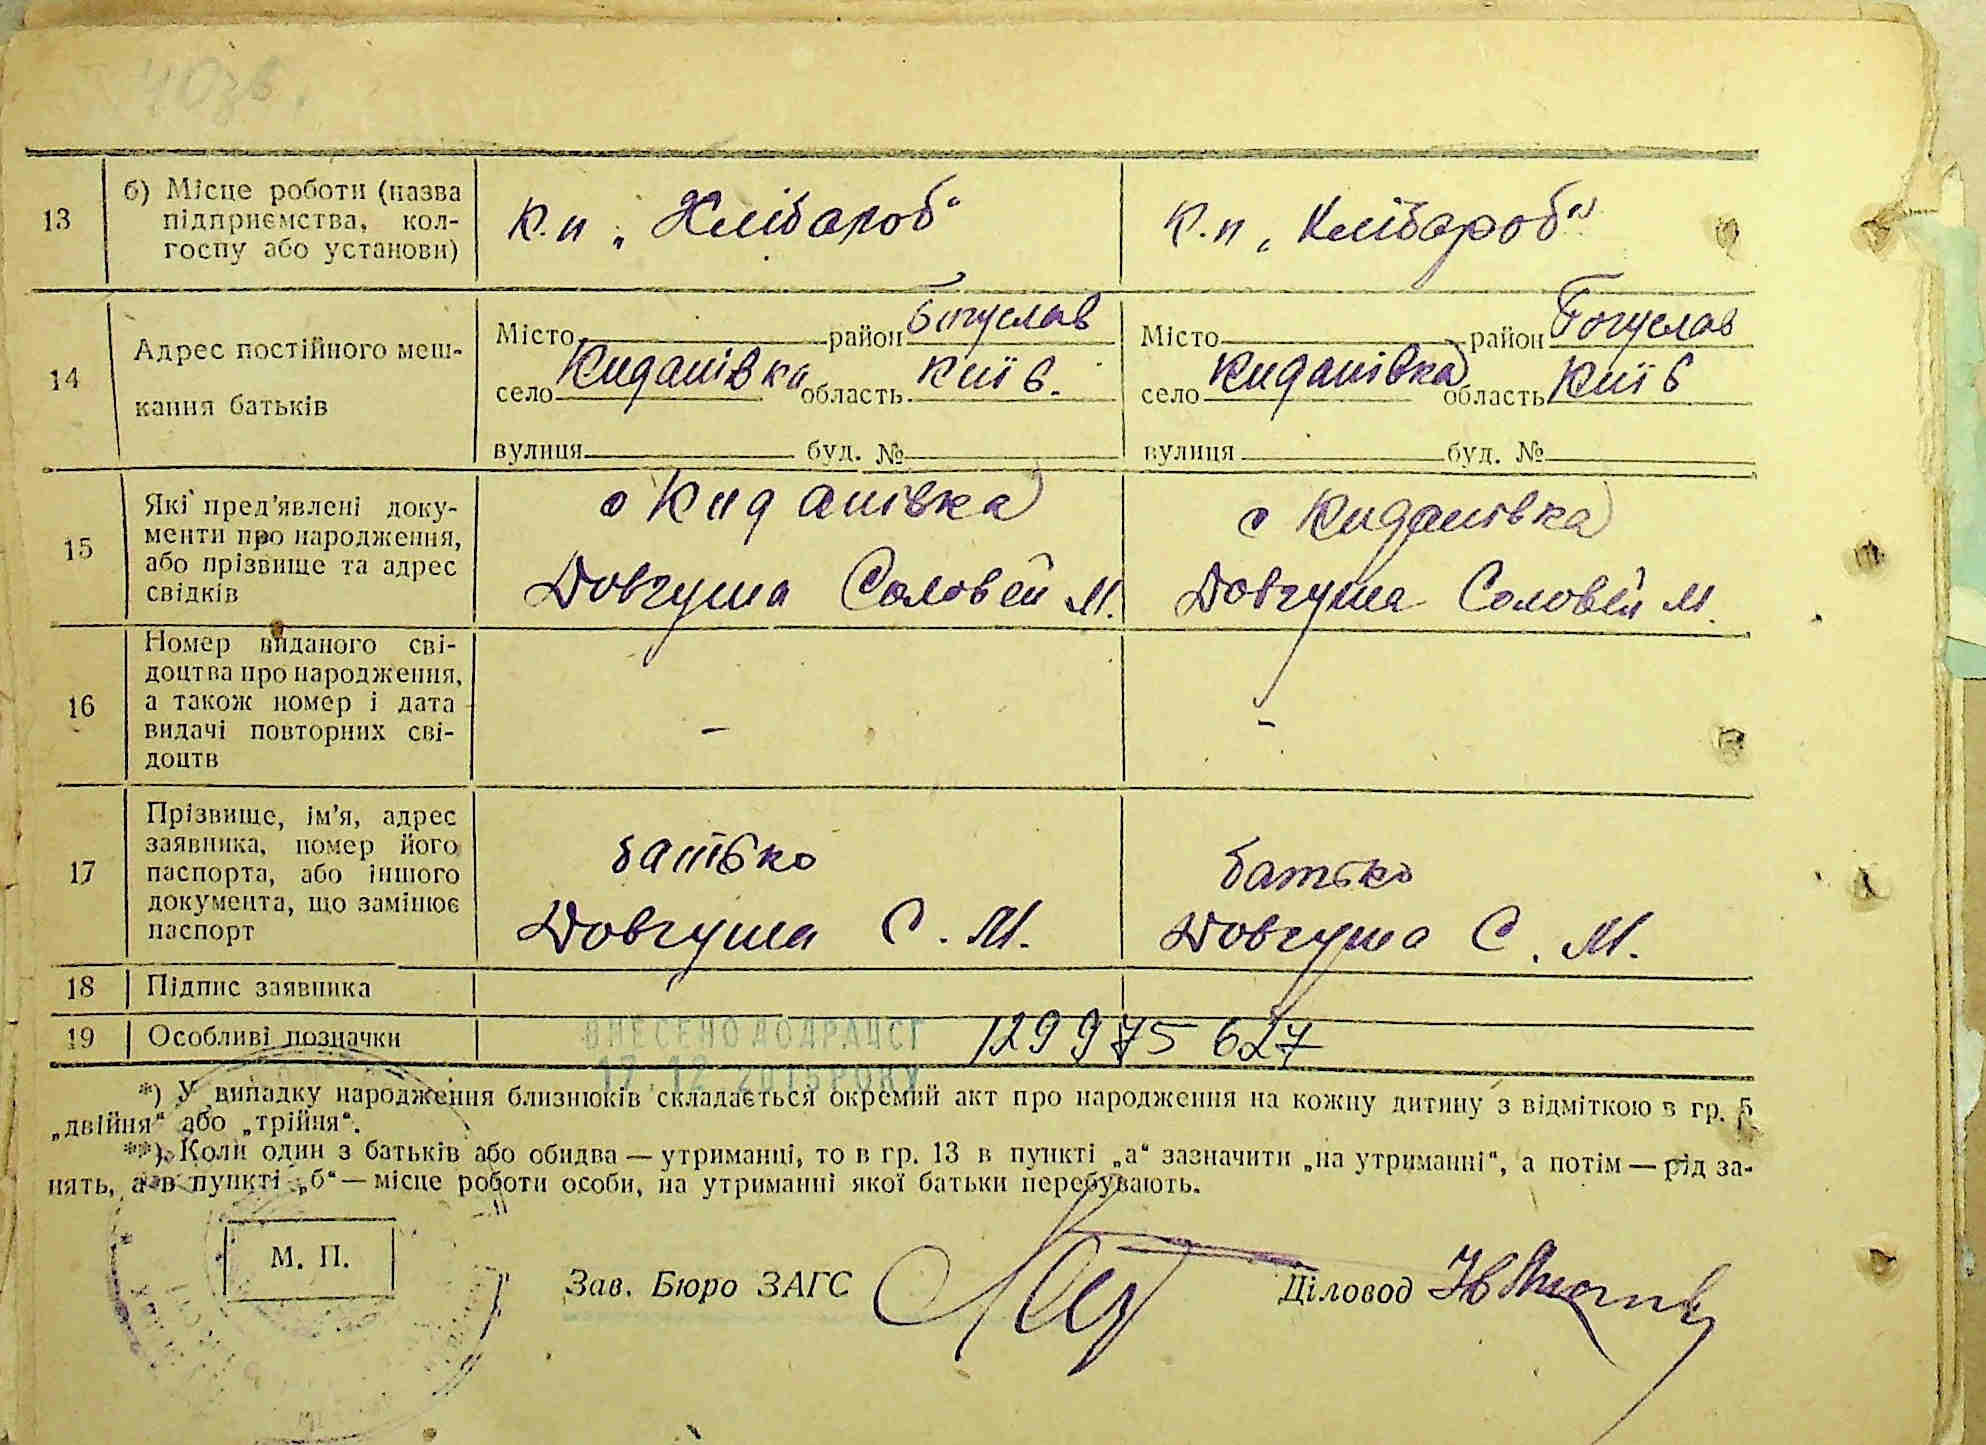 40зв.
13
б) Місце роботи (назва
підприємства, кол-
госпу або установи)
к.п „Хлібороб“
к.п „Хлібороб“
14
Адрес постійного меш-
кання батьків
Місто район Богуслав
село Киданівка область Київ.
вулиця буд. №
Місто район Богуслав
село Киданівка область Київ
вулиця буд. №
15
Які пред'явлені доку-
менти про народження,
або прізвище та адрес
свідків
с Киданівка
Довгуша Соловей М.
с Киданівка
Довгуша Соловей М.
16
Номер виданого сві-
доцтва про народження,
а також номер і дата
видачі повторних сві-
доцтв
–
–
17
Прізвище, ім'я, адрес
заявника, номер його
паспорта, або іншого
документа, що замінює
паспорт
батько
Довгуша С. М.
батько
Довгуша С. М.
18
Підпис заявника
19
Особливі позначки
ВНЕСЕНО ДО ДРАЦСГ
17.12.2015 РОКУ
129975627
*) У випадку народження близнюків складається окремий акт про народження на кожну дитину з відміткою в гр. 5
„двійня“ або „трійня“.
**) Коли один з батьків або обидва — утриманці, то в гр. 13 в пункті „а“ зазначити „на утриманні“, а потім — рід за-
нять, а в пункті „б“ — місце роботи особи, на утриманні якої батьки перебувають.
М. П.
Зав. Бюро ЗАГС
Діловод